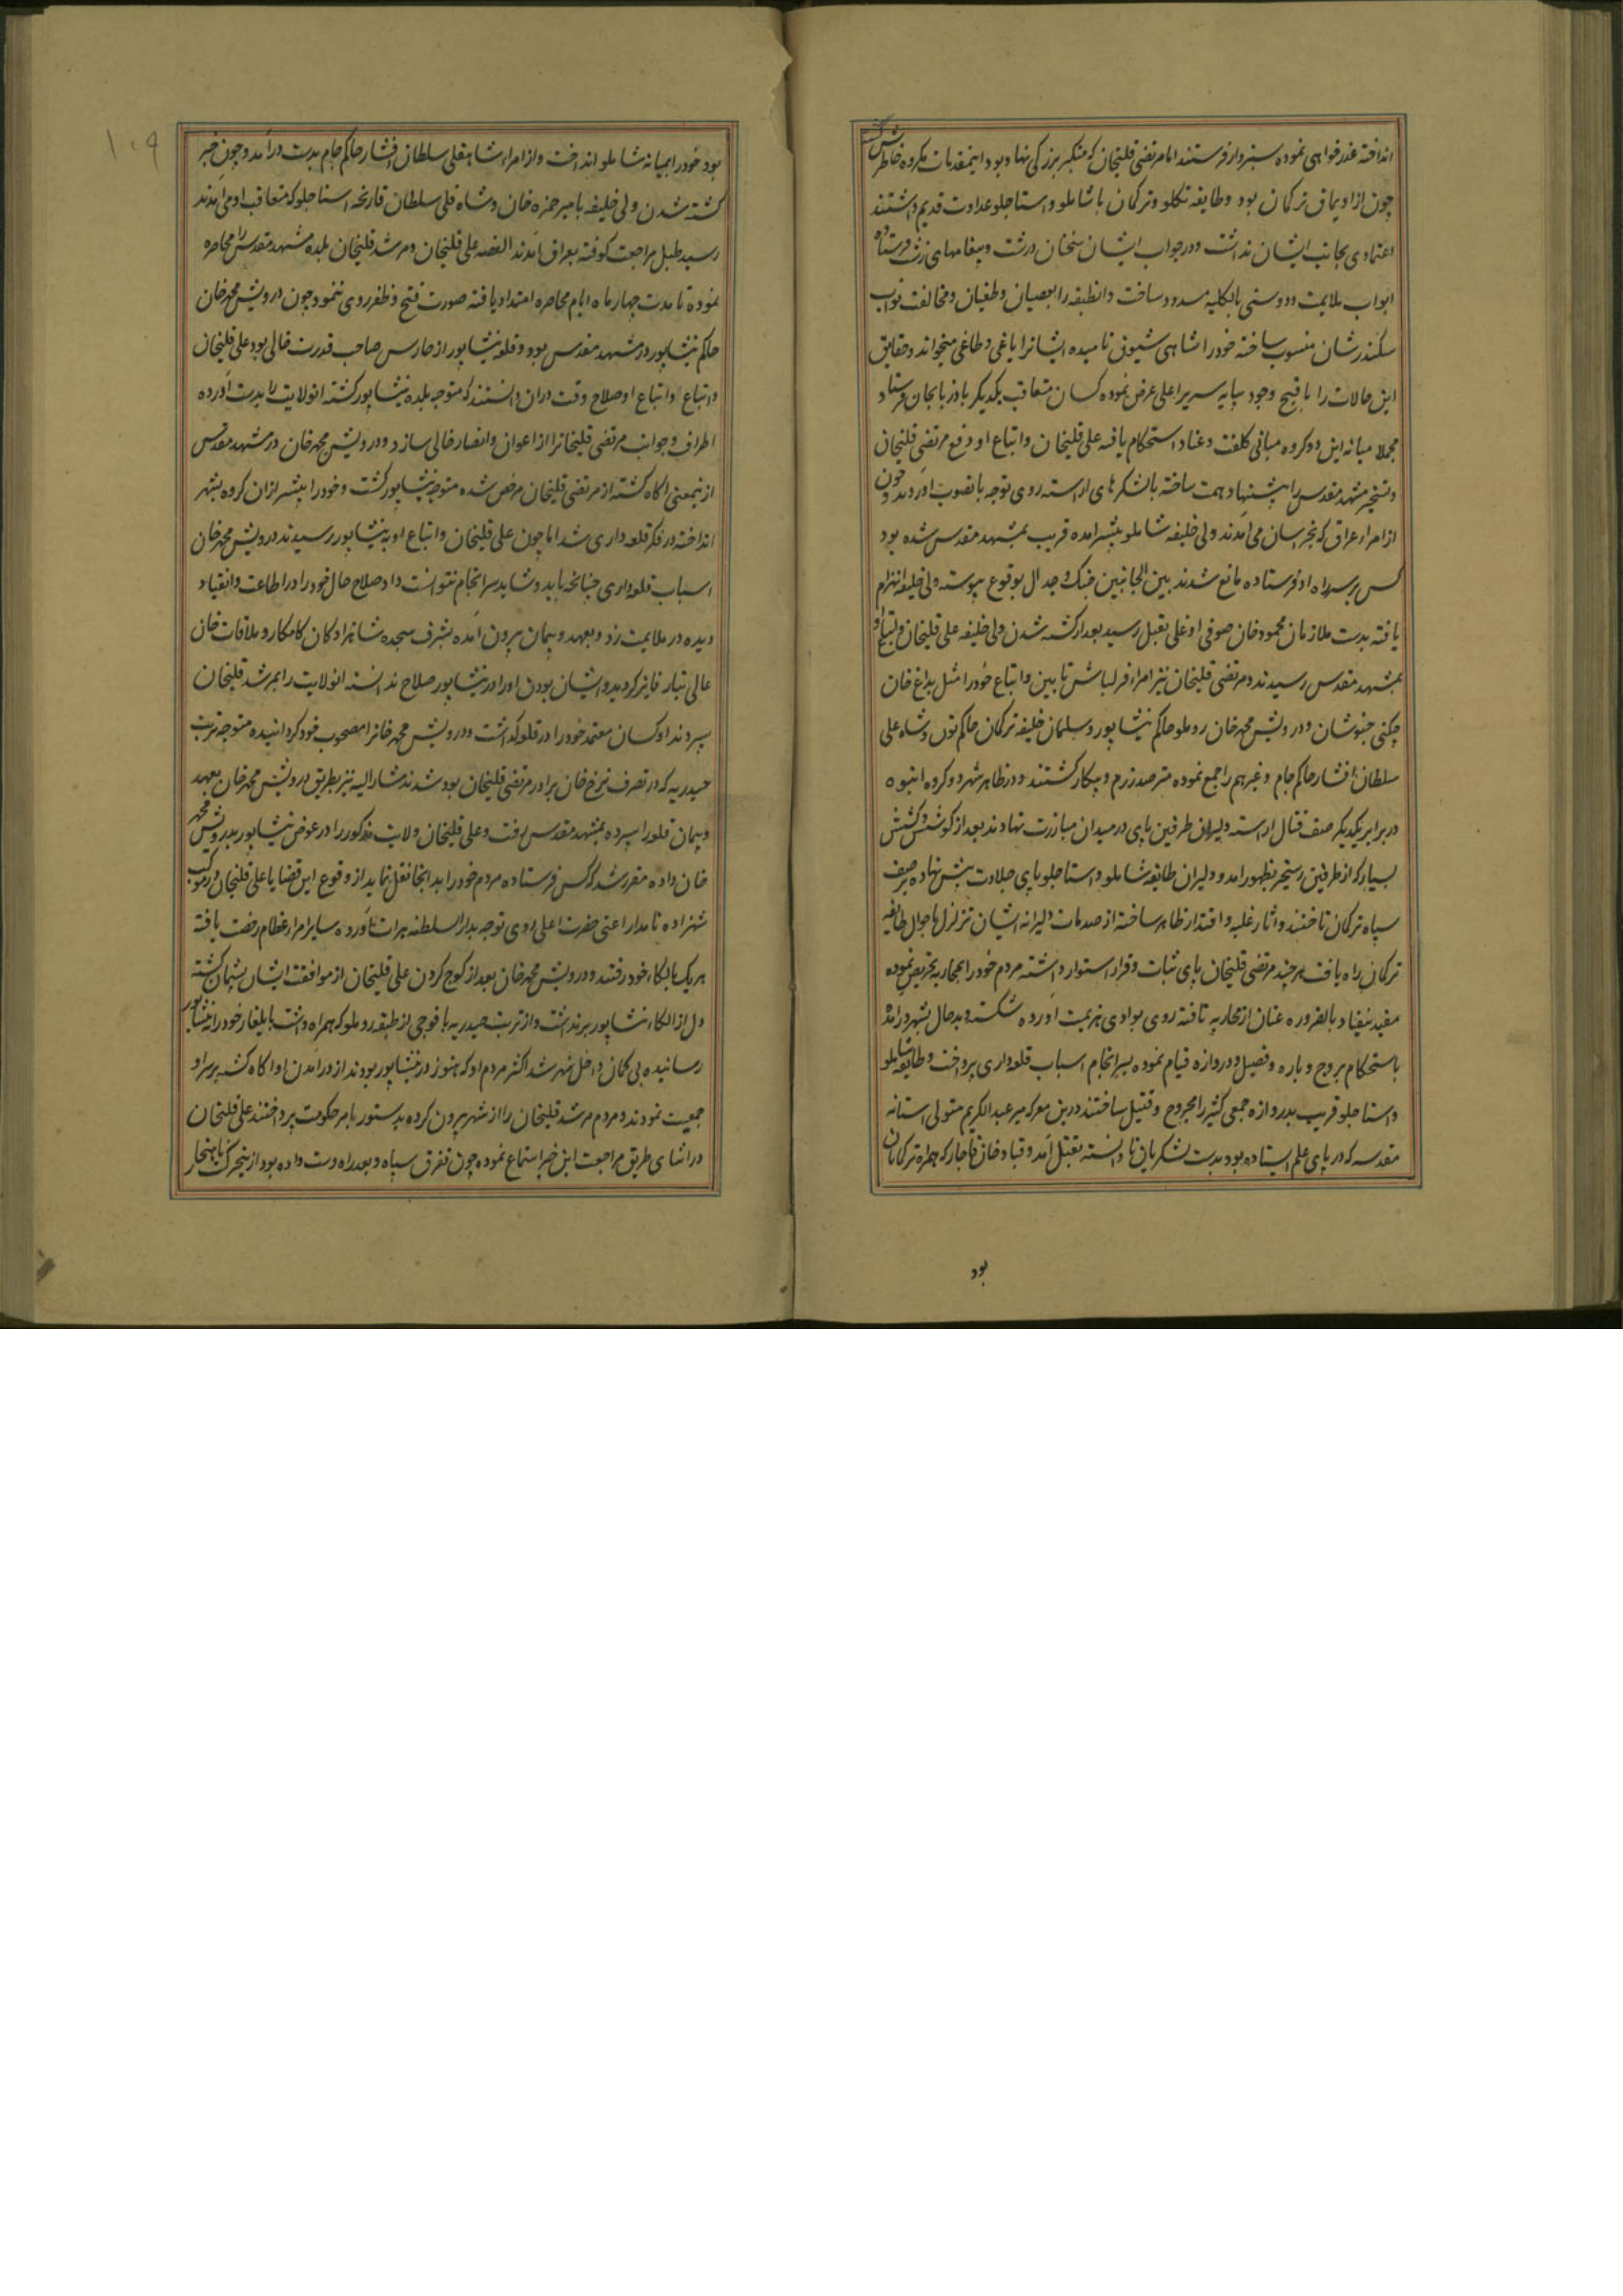 انداخته عذرخواهی نموده سبزوار فرستند اما مرتضی قلیخان که متکبر بزرگی نهاد بود اینمقدمات مکروه خاطرش گشته
چون از اویماق ترکمان بود و طایفه تکلو و ترکمان با شاملو و استاجلو عداوت قدیم داشتند
اعتمادی بجانب ایشان نداشت و در جواب ایشان سخنان درشت و پیغامهای زشت فرستاده
ابواب ملایمت و دوستی بالکلیه مسدود ساخت و انطبقه را بعصیان و طغیان و مخالفت نواب
سکندرشان منسوب ساخته خود را شاهی شیون نامیده ایشانرا یاغی و طاغی میخواند و حقایق
این حالات را باقبح وجود بپایه سریر اعلی عرض نموده کسان متعاقب یکدیگر باذربایجان فرستاد
مجملا میانه این دو کروه مبانی کلفت و عناد استحکام یافته علی قلیخان و اتباع او دفع مرتضی قلیخان
و تسخیر مشهد مقدس را پیشنهاد همت ساخته با لشکرهای اراسته روی توجه بانصوب اوردند و چون
از امراء عراق که بخراسان می‌آمدند ولی خلیفه شاملو پیشتر امده قریب بمشهد مقدس شده بود
کس بر سر راه او فرستاده مانع شدند بین الجانبین جنک و جدال بوقوع پیوسته ولی خلیفه انهزام
یافته بدست ملازمان محمود خان صوفی اوغلی بقتل رسید بعد از کشته شدن ولی خلیفه علی قلیخان و اتباع او
بمشهد مقدس رسیدند و مرتضی قلیخان نیز امراء قزلباش تابین و اتباع خود را مثل بداغ خان
چکنی خبوشان و درویش محمد خان روملو حاکم نیشاپور و سلمان خلیفه ترکمان حاکم تون و شاه علی
سلطان افشار حاکم جام و غیرهم را جمع نموده مترصد رزم و پیکار گشتند و در ظاهر شهر دو کروه انبوه
در برابر یکدیکر صف قتال اراسته دلیران طرفین پای در میدان مبارزت نهادند بعد از کوشش و کشش
بسیار که از طرفین رستخیز بظهور امد و دلیران طایفه شاملو و استاجلو پای جلادت پیش نهاده بر صف
سپاه ترکمان تاختند و اثار غلبه و اقتدار ظاهر ساخته از صدمات دلیرانه ایشان تزلزل باحوال طایفه
ترکمان راه یافت هر چند مرتضی قلیخان پای ثبات و قرار استوار داشته مردم خود را بمحاربه تحریص نموده
مفید نیفتاد بالضروره عنان از محاربه تافته روی بوادی هزیمت آورده شکسته و بدحال بشهر درامد
باستحکام بروج و باره و فصیل و دروازه قیام نموده بسرانجام اسباب قلعه‌داری پرداخت و طایفه شاملو
و استاجلو قریب بدروازه جمعی کثیر را مجروح و قتیل ساختند درین معرکه میر عبدالکریم متولی استانه
مقدسه که در پای علم ایستاده بود بدست لشکریان نادانسته بقتل آمد و قباد خان قاجار که همراه ترکمانان
بود
۱۰۹
بود خود را بمیانه شاملو انداخت و از امراء شاهقلی سلطان افشار حاکم جام بدست درآمد و چون خبر
کشته شدن ولی خلیفه بامیر حمزه خان و شاه قلی سلطان قارنجه استاجلو که متعاقب او می‌آمدند
رسید طبل مراجعت کوفته بعراق آمدند القصه علی قلیخان و مرشد قلیخان بلده مشهد مقدس را محاصره
نموده تا مدت چهار ماه ایام محاصره امتداد یافته صورت فتح و ظفر روی ننمود چون درویش محمد خان
حاکم نیشاپور در مشهد مقدس بود و قلعه نیشاپور از حارس صاحب قدرت خالی بود علی قلیخان
و اتباع اتباع او صلاح وقت در ان دانستند که متوجه بلده نیشاپور کشته انولایت را بدست آورده
اطراف و جوانب مرتضی قلیخانرا از اعوان و انصار خالی سازد و درویش محمد خان در مشهد مقدس
از ینمعنی اکاه کشته از مرتضی قلیخان مرخص شده متوجه نیشاپور کشت و خود را پیشتر از ان کروه بشهر
انداخته در فکر قلعه داری شد اما چون علی قلیخان و اتباع او به نیشاپور رسیدند درویش محمد خان
اسباب قلعه‌داری چنانچه باید و شاید سرانجام نتوانست داد صلاح حال خود را در اطاعت و انقیاد
دیده در ملایمت زد و بعهد و پیمان بیرون آمده بشرف سجده شاهزادکان کامکار و ملاقات خان
عالی تبار فایز کردید و ایشان بودن او را در نیشاپور صلاح ندانسته انولایت را بمرشد قلیخان
سپردند او کسان معتمد خود را در قلعه کذاشت و درویش محمد خانرا مصحوب خود کردانیده متوجه تربت
حیدریه که در تصرف فرخ خان برادر مرتضی قلیخان بود شدند مشارالیه نیز بطریق درویش محمد خان بعهد
و پیمان قلعه را سپرده بمشهد مقدس رفت و علی قلیخان ولایت مذکور را در عوض نیشاپور بدرویش محمد
خان داده مقرر شد که کس فرستاده مردم خود را بدانجا نقل نماید از وقوع این قضایا علی قلیخان در موکب
شهزاده نامدار اعنی حضرت اعلی روی توجه بدار السلطنه هرات آورده سایر امراء عظام رخصت یافته
هر یک بالکاء خود رفتند و درویش محمد خان بعد از کوچ کردن علی قلیخان از موافقت ایشان پشیمان کشته
دل از الکاء نیشاپور بر نداشت و از تربت حیدریه با فوجی از طبقه روملو که همراه داشت بایلغار خود را به نیشاپور
رسانیده بی کمان داخل شهر شد اکثر مردم او که هنوز در نیشاپور بودند از درآمدن او اکاه کشته بر سر او
جمعیت نمودند و مردم مرشد قلیخان را از شهر بیرون کرده بدستور بامر حکومت پرداختند علی قلیخان
در اثنای طریق مراجعت این خبر استماع نموده چون تفرق سپاه و بعد راه دست داده بود از ینحرکت ناهنجار